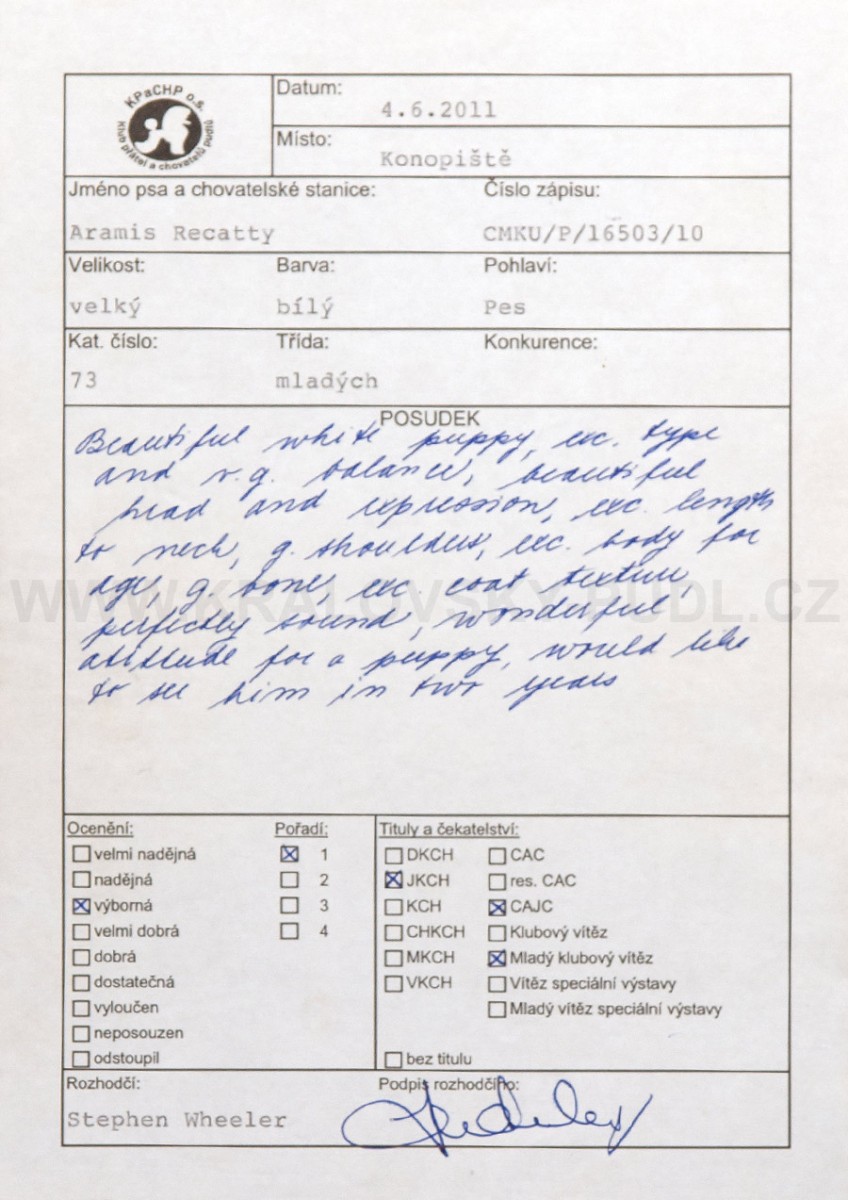 KPaCHP o.s.
Klub přátel a chovatelů pudlů
Datum:
4.6.2011
Místo:
Konopiště
Jméno psa a chovatelské stanice: Číslo zápisu:
Aramis Recatty CMKU/P/16503/10
Velikost: Barva: Pohlaví:
velký bílý Pes
Kat. číslo: Třída: Konkurence:
73 mladých
POSUDEK
Beautiful white puppy, exc. type
and v.g. balance, beautiful
head and expression, exc. length
to neck, g. shoulders, exc. body for
age, g. bone exc coat texture,
perfectly sound, wonderful
attitude for a puppy, would like
to see him in two years
WWW.KRALOVSKY-PUDL.CZ
Ocenění: Pořadí: Tituly a čekatelství:
velmi nadějná 1 DKCH CAC
nadějná 2 JKCH res. CAC
výborná 3 KCH CAJC
velmi dobrá 4 CHKCH Klubový vítěz
dobrá MKCH Mladý klubový vítěz
dostatečná VKCH Vítěz speciální výstavy
vyloučen Mladý vítěz speciální výstavy
neposouzen
odstoupil bez titulu
Rozhodčí: Podpis rozhodčího:
Stephen Wheeler